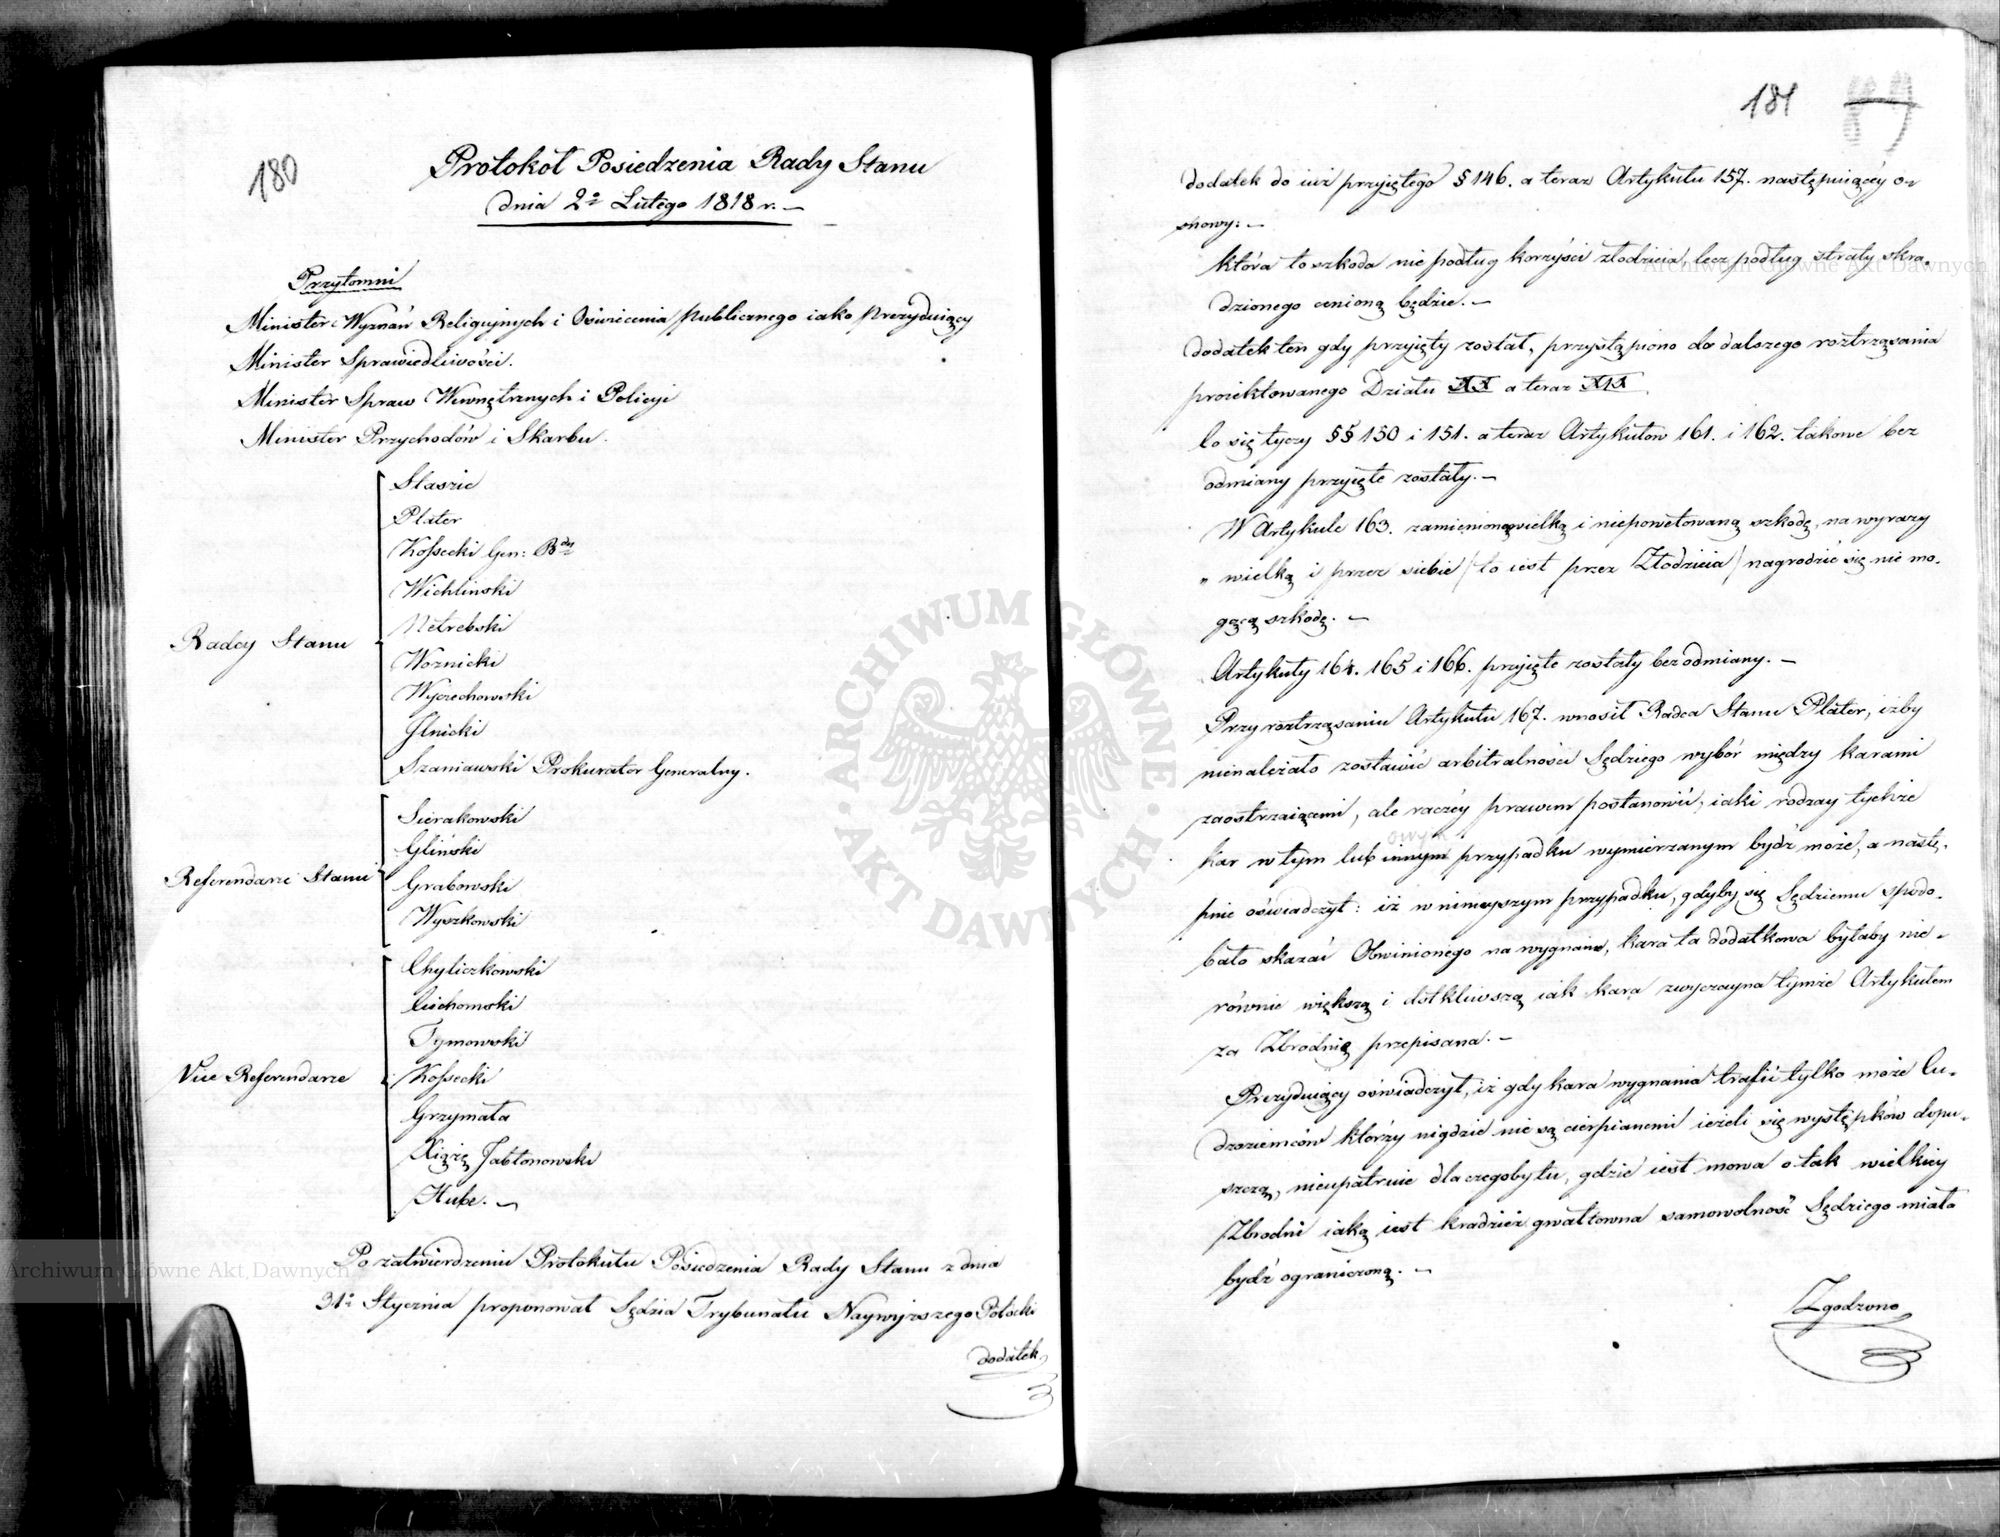 180
Protokół Posiedzenia Rady Stanu
dnia 2º Lutego 1818 r. –
Przytomni
Minister Wyznań Religijnych i Oświecenia publicznego iako Prezyduiący
Minister Sprawiedliwości.
Minister Spraw Wewnętrznych i Policyi
Minister Przychodów i Skarbu.
Radcy Stanu
Staszic
Plater
Kossecki Gen: Bdy
Wichlinski
Netrebski
Woznicki
Wyczechowski
Glnicki
Szaniawski Prokurator Generalny.
Referendarze Stanu
Sierakowski
Gliński
Grabowski
Wyszkowski
Vice Referendarze
Chyliczkowski
Ciechomski
Tymowski
Kossecki
Grzymała
Xiążę Jabłonowski
Hube. –
Po zatwierdzeniu Protokułu Posiedzenia Rady Stanu z dnia
31º Stycznia proponował Sędzia Trybunału Naywyższego Potocki
dodatek
181
dodatek do iuż przyiętego § 146. a teraz Artykułu 157. następuiącéy o-
snowy: –
która to szkoda nie podług korzyści złodzieia, lecz podług straty skra-
dzionego cenioną będzie. –
dodatek ten gdy przyięty został, przystąpiono do dalszego roztrząsania
proiektowanego Działu XX a teraz XIX.
Co się tyczy §§ 150 i 151. a teraz Artykułow 161. i 162. takowe bez
odmiany przyięte zostały. –
W Artykule 163. zamieniono wielką i niepowetowaną szkodę, na wyrazy
„ wielką i przez siebie / to iest przez Złodzieia / nagrodzić się nie mo-
gącą szkodę. –
Artykuły 164. 165 i 166. przyięte zostały bez odmiany. –
Przy roztrząsaniu Artykułu 167. wnosił Radca Stanu Plater, iżby
nienależało zostawić arbitralności Sędziego wybór między karami
zaostrzaiącemi, ale raczéy prawem postanowić, iaki rodzay tychże
kar w tym lub innym przypadku wymierzanym bydź może, a nastę-
pnie oświadczył: iż w ninieyszym przypadku, gdyby się Sędziemu spodo-
bało skazać Obwinionego na wygnanie, kara ta dodatkowa byłaby nie-
równie większą i dotkliwszą iak kara zwyczayna tymże Artykułem
za Zbrodnię przepisana. –
Prezyduiący oświadczył, iż gdy kara wygnania trafić tylko może Cu-
dzoziemców którzy nigdzie nie są cierpianemi ieżeli się występków dopu-
szczą, nieupatruie dla czegoby tu, gdzie iest mowa o tak wielkiey
Zbrodni iaką iest kradzież gwałtowna samowolność Sędziego miała
bydź ograniczoną. –
Zgodzono
ARCHIWUM GŁÓWNE AKT DAWNYCH
Archiwum Główne Akt Dawnych
Archiwum Główne Akt Dawnych